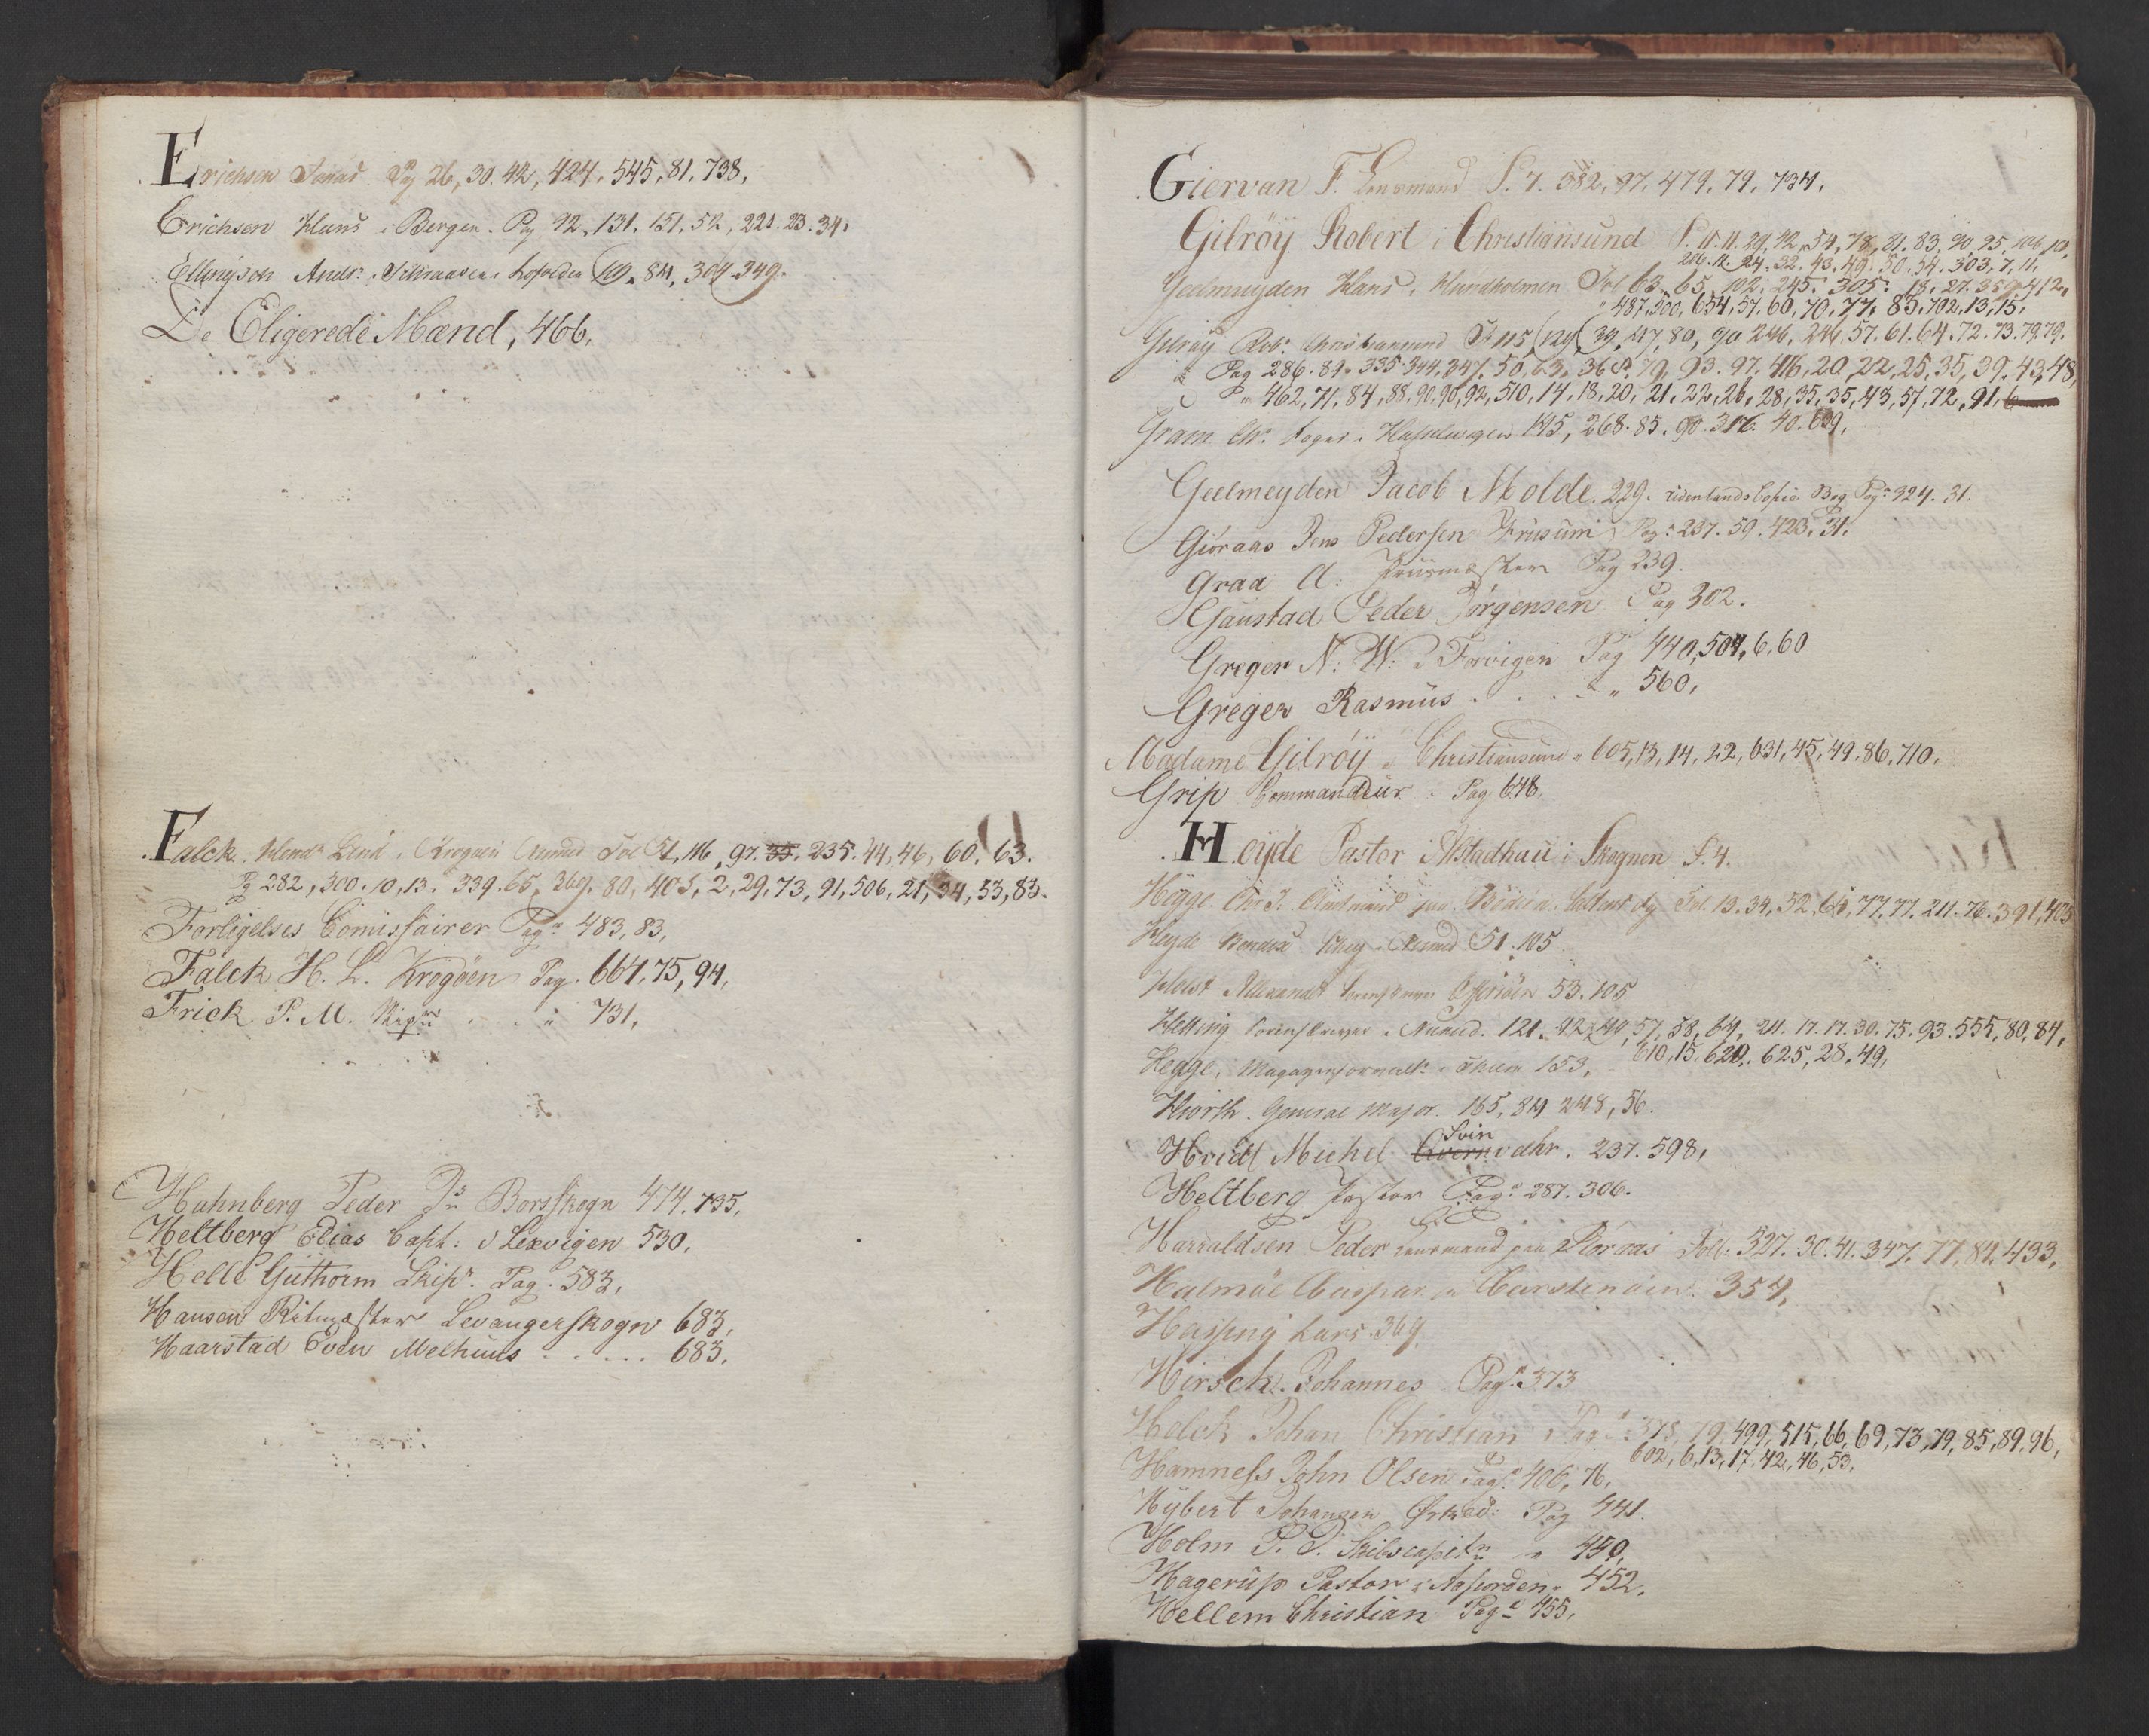 Erichsen Jonas Pag 26, 30. 42, 424, 545, 81, 738,
Erichsen Hans i Bergen. Pag 92, 131, 151, 52, 221. 23. 34.
Ellingson Andr: i Lofoden 84, 304. 349.
De Eligerede Mænd, 466.
Falck Hend: Lind. Krogøen Fol 51, 116, 97. 35, 235. 44, 46, 60. 63.
Pg 282, 300. 10, 13. 339. 65, 369. 80, 405, 2, 29, 73, 91, 506, 21, 34, 53, 83.
Forligelses Comissairer Pag: 483, 83,
Falck H. L. Krogøen Pag. 664, 75, 94,
Frick P. M. Skip: " 731,
Huhnberg Peder Borsskogn 474. 735,
Heltberg Elias Capt: i Lexvigen 530,
Helle Guthorm Skipr. Pag. 583,
Hansen Ritmester Levangerskogn 683,
Haarstad Even Melhuus 683.
Giervan F. Lensmand S. 7. 382, 97, 479, 79, 734,
Gilrøÿ Robert i Christiansund 29, 42, 54, 78, 81. 83, 90, 95, 106, 10,
216. 11. 24. 32. 43. 49. 50. 54. 303, 7, 11,
Geelmuyden Hans i Hundholmen Fol 63. 65. 102, 245. 305. 18, 27. 359, 412,
" 487, 500, 654, 57, 60, 70, 77, 83, 702, 13, 15,
Gilrøy Rob: Christiansund 115, 129, 39, 47, 80, 90 246, 57. 61. 64. 72. 73. 79. 79.
Pag 286. 89. 335. 344, 347, 50, 63, 79, 93. 97. 416, 20, 22, 25, 35, 39, 43, 48,
P " 462, 71, 84, 88, 90, 90, 92, 510, 14, 18, 20, 21, 22, 26, 28, 35, 35, 43, 57, 72, 91, 6
Gram Chr. Foged i 195, 268. 85. 90. 316. 40. 639,
Geelmeyden Jacob Molde. 229. Udenlands Copie Bog Pag: 324. 31.
Giøraas Jens Pedersen Pag: 237. 59. 423, 31,
Graa A: Pag 239.
Gaustad Peder Jørgensen Pag 302.
Greger N: W: i Forvigen Pag 440, 504, 6, 60
Greger Rasmus " 560,
Madame Gilrøÿ i Christiansund " 605, 13, 14, 22, 631, 45, 49, 86, 710,
Grip Commandeur. Pag 648,
Heÿde Pastor i Alstadhau i Skognen S. 4.
Hegge Chr. Amtmand paa Fol. 13. 34, 52, 77, 77. 211. 76. 391, 405
Heyde 51. 105
Holst Allexander 53. 105
Helling Sorenskriver i 121. 22, 40, 57, 58, 64, 211. 17. 17. 30. 75. 93. 555, 80, 84,
610, 15, 620, 625, 28, 49,
Hegge, Magazinforvalt: 153,
Hiorth. General Major. 165, 84 248, 56.
Svin
Hvidt Michel dhr. 237. 598,
Heltberg Pastor Pag: 287. 306.
Harraldsen Peder Lensmand paa Fol: 327. 30. 41. 347, 77, 84, 433,
Halmøe Caspar 354,
Lars. 369.
Hirsch. Johannes Pag: 373
Holck Johan Christian Pag: 378, 79, 499, 515, 66, 69, 73, 79, 85, 89, 96,
602, 6, 13, 17, 42, 46, 53,
Hamness John Olsen Pag: 406, 76,
Hÿbert Johansen Ørked: Pag 441.
Holm P. P. Skibscapit: " 450,
Hagerup Pastor i Aafiorden " 452.
Hellem Christian Pag: 455,